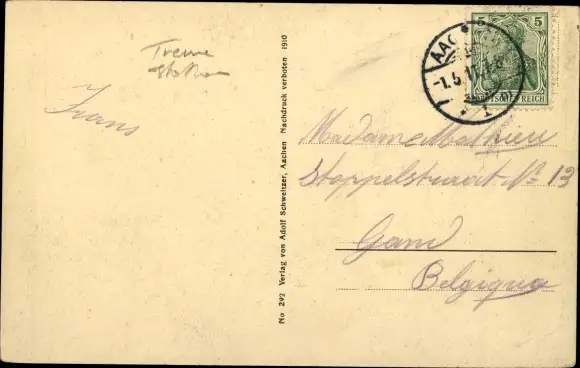 Frans
No 292 Verlag von Adolf Schweitzer, Aachen Nachdruck verboten 1910
5 5
DEUTSCHES REICH
AAC
-1.5.1
1
Madame Mathieu
Stoppelstraat No 13
Gand
Belgique